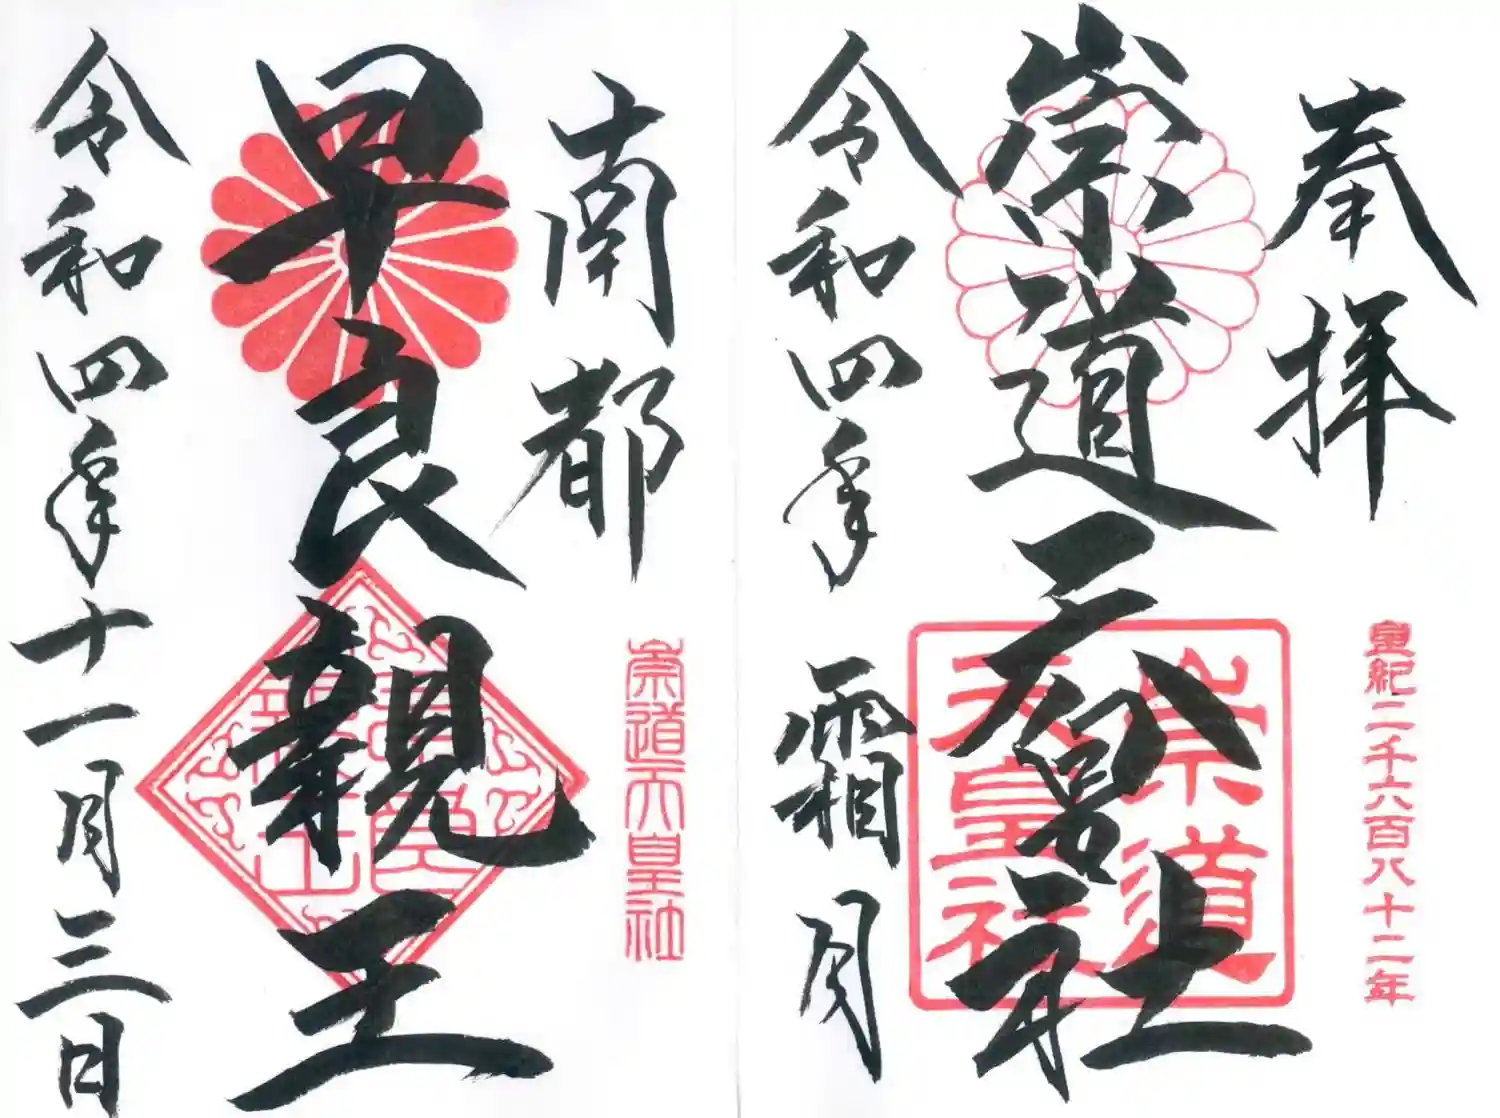 奉拝
皇紀二千六百八十二年
崇道天皇社
崇道
天皇社
令和四年霜月
南都
崇道天皇社
早良親王
早良
親王
令和四年十一月三日